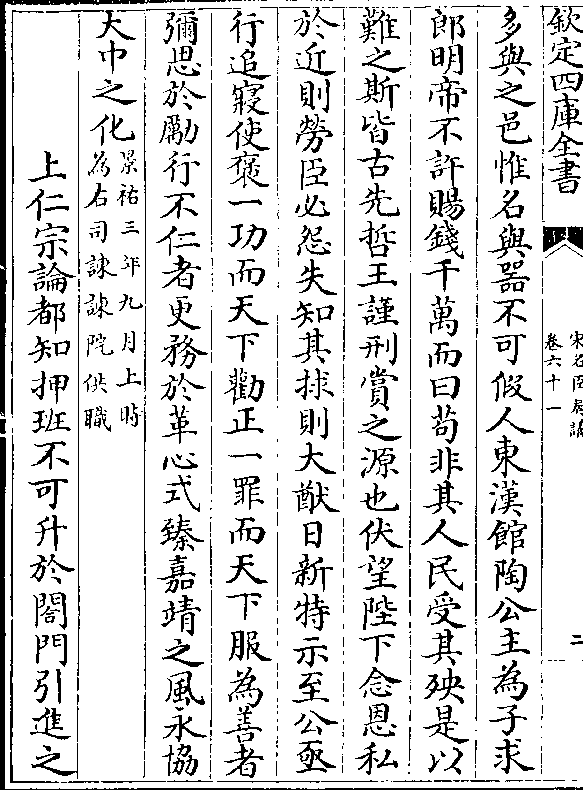 欽定四庫全書
宋名臣奏議
卷六十一
二
多與之邑惟名與器不可假人東漢館陶公主為子求
郎明帝不許賜錢千萬而曰苟非其人民受其殃是以
難之斯皆古先哲王謹刑賞之源也伏望陛下念恩私
於近則勞臣必怨失知其捄則大猷日新特示至公亟
行追寢使褒一功而天下勸正一罪而天下服為善者
彌思於勵行不仁者更務於革心式臻嘉靖之風永協
大中之化
景祐三年九月上時
為右司諫諫院供職
上仁宗論都知押班不可升於閤門引進之